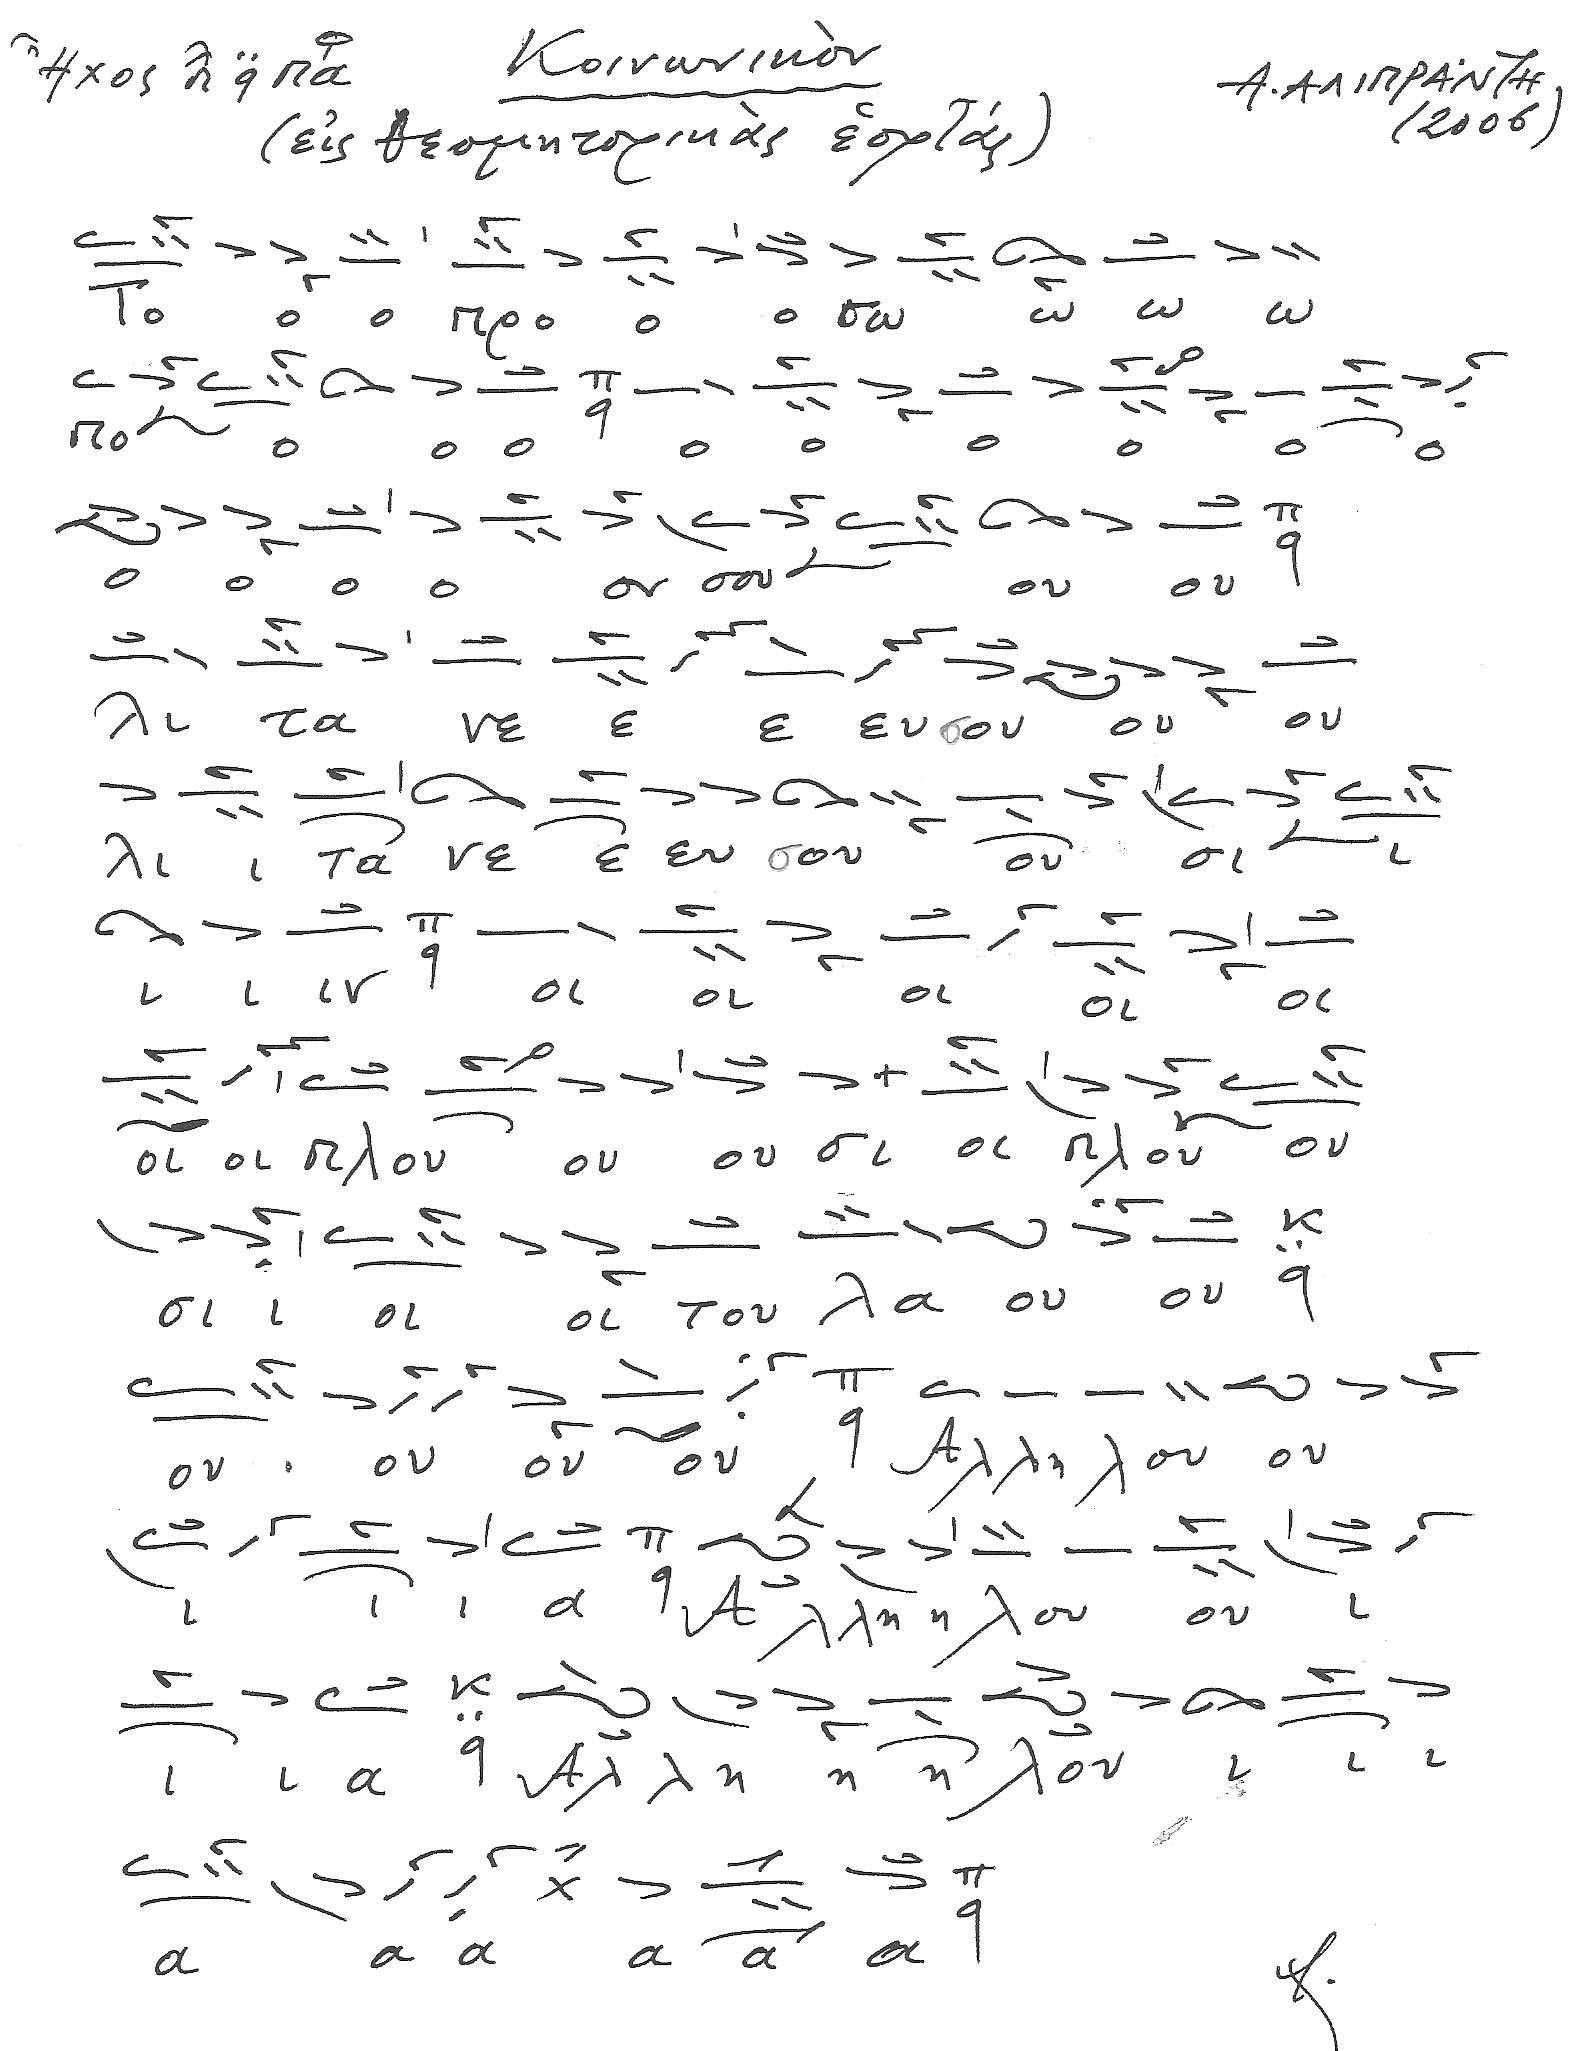 Ἦχος λ̈ π̈ q Πα Κοινωνικὸν Α. ΑΛΙΠΡΑΝΤΗ
(εἰς Θεομητορικὰς ἑορτάς) (2006)
Το ο ο προ ο ο σω ω ω ω
πο ο ο ο π q ο ο ο ο ο ο
ο ο ο ο ον σου ου ου π q
λι τα νε ε ε ευ σου ου ου
λι ι τα νε ε ευ σου ου σι ι
ι ι ιν π q οι οι οι οι οι
οι οι πλου ου ου σι οι πλου ου
σι ι οι οι του λα ου ου κ q
ου . ου ου ου π q Αλλη λου ου
ι ι ι α π q Αλλη η λου ου ι
ι ι α κ q Αλλη η η λου ι ι ι
α α α χ α α α π q